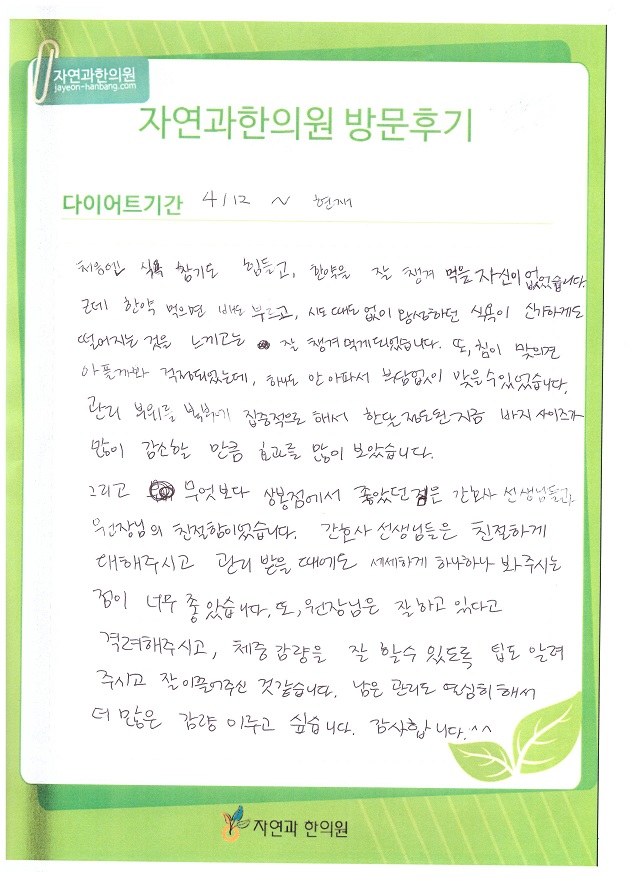 자연과한의원
jayeon-hanbang.com
자연과한의원 방문후기
다이어트기간 4/12 ~ 현재
처음엔 식욕 참기도 힘들고, 한약을 잘 챙겨 먹을 자신이 없었습니다.
근데 한약 먹으면 배도 부르고, 시도 때도 없이 왕성하던 식욕이 신기하게도
떨어지는 것을 느끼고는 잘 챙겨 먹게 되었습니다. 또, 침이 맞으면
아플게봐 걱정되었는데, 하나도 안 아파서 부담없이 맞을 수 있었습니다.
관리 부위를 복부가 집중적으로 해서 한달 정도 된 지금 바지 사이즈가
많이 감소할 만큼 효과를 많이 보았습니다.
그리고 무엇보다 상봉점에서 좋았던 점은 간호사 선생님들과
원장님의 친절함이었습니다. 간호사 선생님들은 친절하게
대해주시고 관리 받을 때에도 세세하게 하나하나 봐주시는
점이 너무 좋았습니다. 또, 원장님은 잘하고 있다고
격려해주시고, 체중 감량을 잘 할 수 있도록 팁도 알려
주시고 잘 이끌어주신 것 같습니다. 남은 관리도 열심히 해서
더 많은 감량 이루고 싶습니다. 감사합니다.^^
자연과 한의원